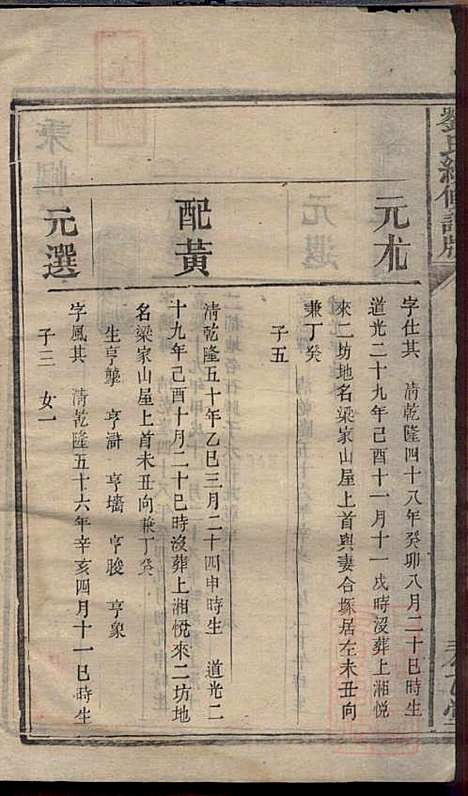 劉氏續修譜牒
元尤
字仕其 清乾隆四十八年癸卯八月二十巳時生
道光二十九年己酉十一月十一戌時沒葬上湘悅
來二坊地名梁家山屋上首與妻合塚居左未丑向
兼丁癸
子五
配黃
清乾隆五十年乙巳三月二十四申時生 道光二
十九年己酉十月二十巳時沒葬上湘悅來二坊地
名梁家山屋上首未丑向兼丁癸
生亨 亨澣 亨墻 亨駿 亨象
元選
字風其 清乾隆五十六年辛亥四月十一巳時生
子三 女一